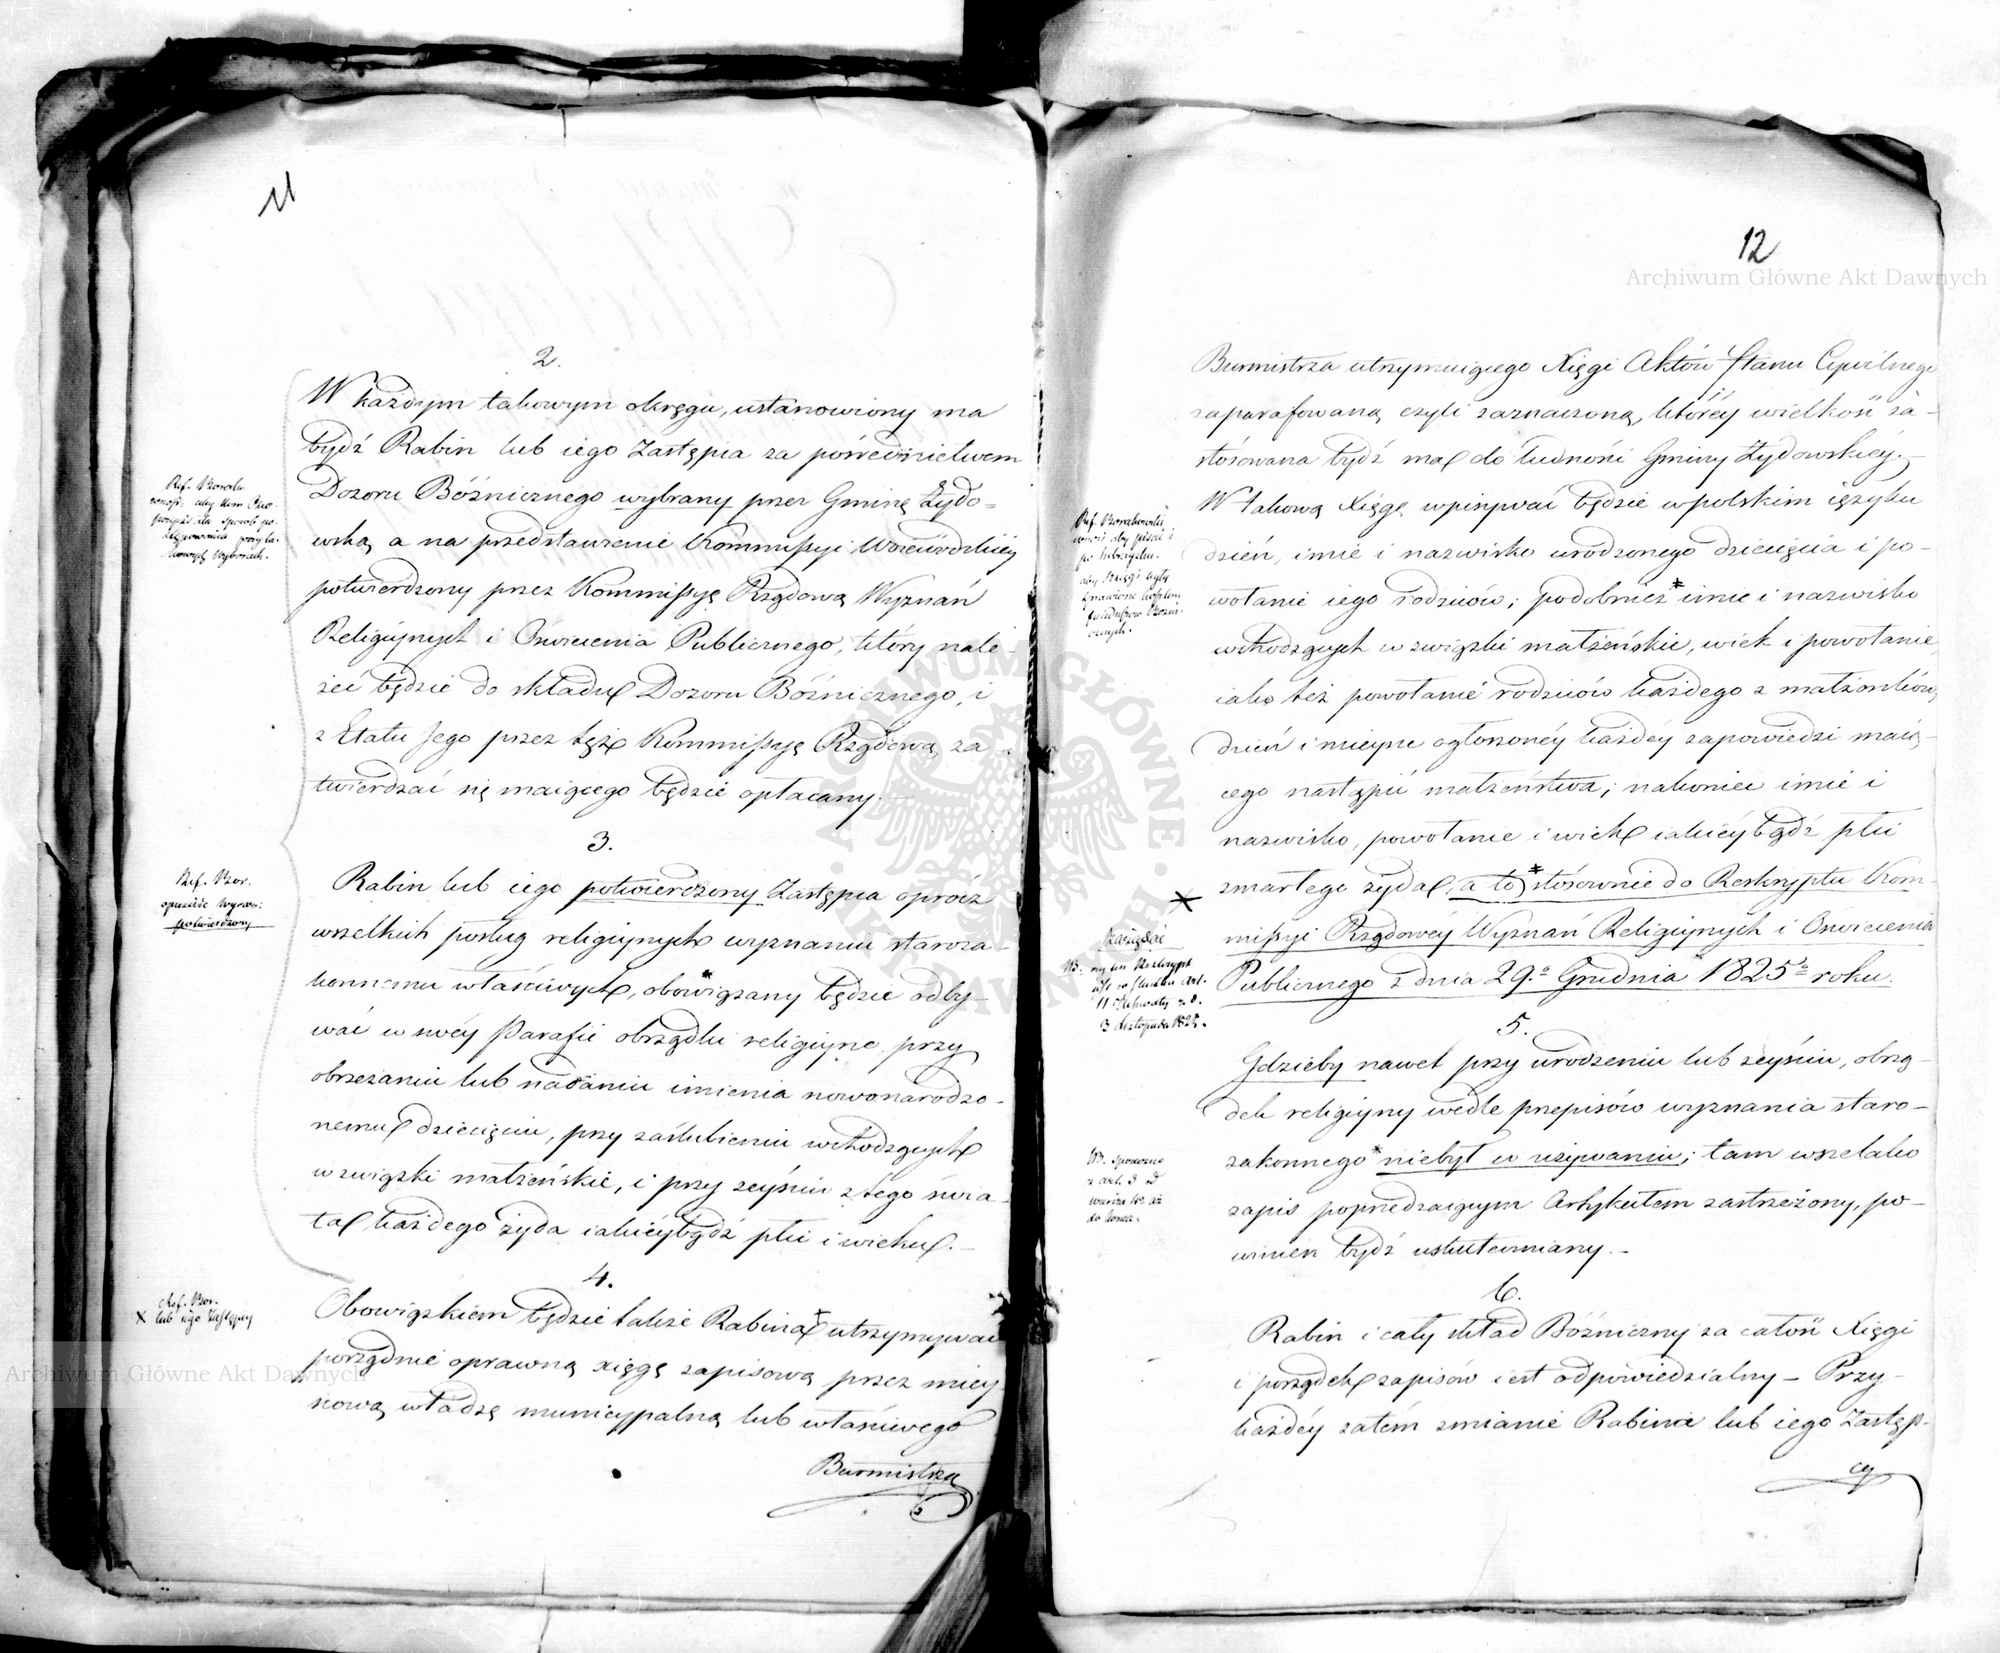 11
2.
W każdym takowym okręgu, ustanowiony ma
bydź Rabin lub iego Zastępca za pośrednictwem
Dozoru Bóżnicznego wybrany przez Gminę Żydo-
wską a na przedstawienie Kommissyi Woiewódzkiéy
potwierdzony przez Kommissyę Rządową Wyznań
Religiynych i Oświecenia Publicznego, który nale-
żeć będzie do składu Dozoru Bóżnicznego, i
z Etatu Jego przez tęż Kommissyę Rządową za-
twierdzać się maiącego będzie opłacany.
3.
Rabin lub iego potwierdzony Zastępca oprócz
wszelkich posług religiynych wyznaniu staroza-
konnemu właściwych, obowiązany będzie odby-
wać w swéy Parafii obrządki religiyne przy
obrzezaniu lub nadaniu imienia nowonarodzo-
nemu dziecięciu, przy zaślubieniu wchodzących
w związki małżeńskie, i przy zeyściu z tego świa-
ta każdego żyda iakiéybądź płci i wieku.
4.
Obowiązkiem będzie także Rabina utrzymywać
porządnie oprawną xięgę zapisową przez miey-
scową władzę municypalną lub właściwego
Burmistrza
Ref. Bor.
opuścić wyraz:
potwierdzony
Ref. Bor.
X lub iego Zastępcy
Archiwum Główne Akt Dawnych
12
Archiwum Główne Akt Dawnych
Burmistrza utrzymuiącego Xięgi Aktów Stanu Cywilnego
zaparafowaną czyli zaznaczoną, któréy wielkość za-
stósowana bydź ma do ludności Gminy Żydowskiéy.
W takową Xięgę wpisywać będzie w polskim ięzyku
dzień, imie i nazwisko urodzonego dziecięcia i po-
wołanie iego rodziców; podobnież imie i nazwisko
wchodzących w związki małżeńskie, wiek i powołanie,
iako też powołanie rodziców każdego z małżonków,
dzień i mieysce ogłoszonéy każdéy zapowiedzi maią-
cego nastąpić małżeństwa; nakoniec imie i
nazwisko, powołanie i wiek iakiéybądź płci
zmarłego żyda, a to stósownie do Reskryptu Kom-
missyi Rządowéy Wyznań Religiynych i Oświecenia
Publicznego z dnia 29.º Grudnia 1825 roku.
5.
Gdzieby nawet przy urodzeniu lub zeyściu, obrzą-
dek religiyny wedle przepisów wyznania staro-
zakonnego niebył w używaniu; tam wszelako
zapis poprzedzaiącym Artykułem zastrzeżony, po-
winien bydź uskuteczniany.
6.
Rabin i cały skład Bóżniczny za całość Xięgi
i porządek zapisów iest odpowiedzialny – Przy
każdéy zatém zmianie Rabina lub iego Zastęp-
cy
po hebraysku.
aby Xięgi były
3 Listopada 1825.
do końca.
ARCHIWUM GŁÓWNE AKT DAWNYCH